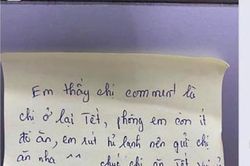 Em thấy chị comment là
chị ở lại Tết, phòng em còn ít
đồ ăn, em rút tủ lạnh nên gửi chị
ăn nha ^^ chúc chị ăn Tết